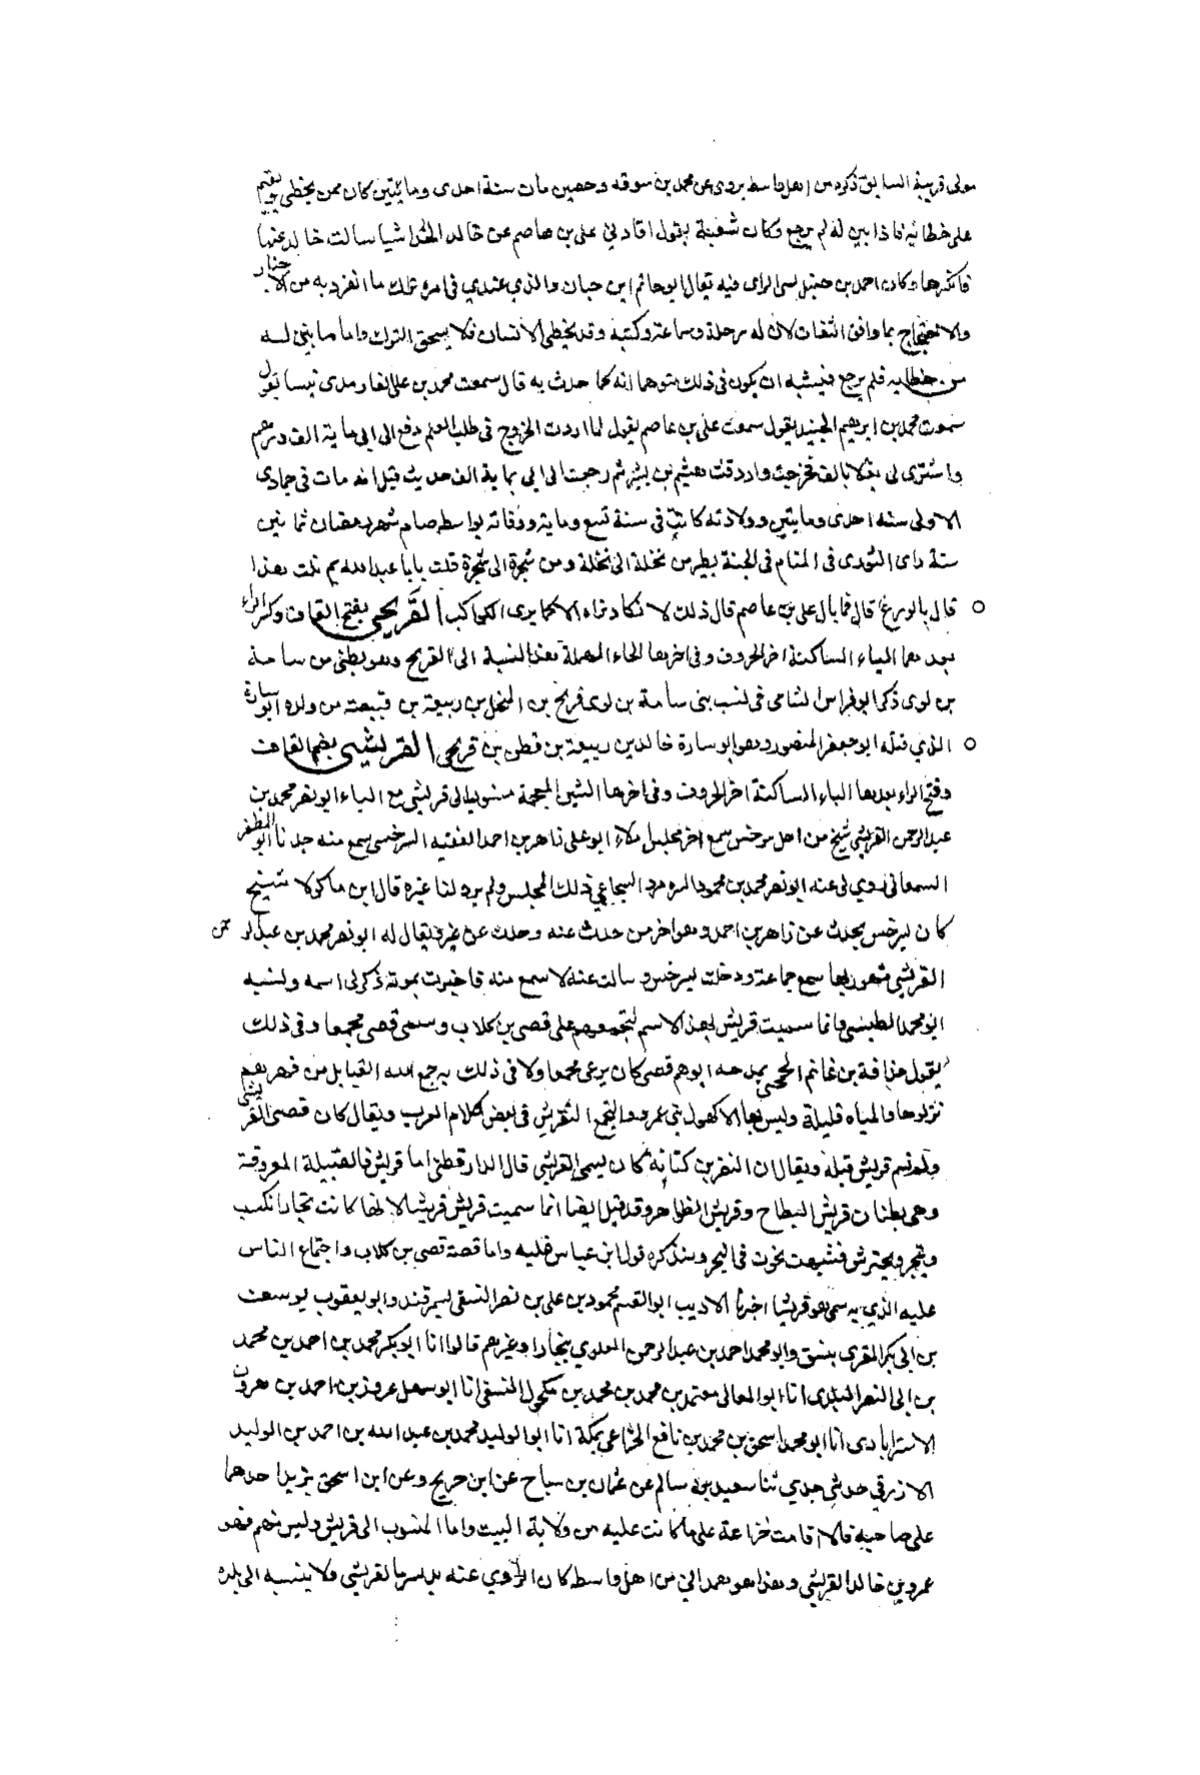 مولى قريبة السابق ذكره من اهل واسط يروى عن محمد بن سوقه وحصين مات سنة احدى ومايتين كان ممن يخطى ويقيم
على خطائه فاذا بين له لم يرجع وكان شعبة يقول افادني على بن عاصم عن خالد الحذا اشيا سالت خالد عنها
فانكرها وكان احمد بن حنبل سى الراى فيه قال ابو حاتم ابن حبان والذي عندي فى امره ترك ما انفرد به من الاخبار
والاحتجاج بما وافق الثقات لان له رحلة وسماعة وكتبة وقد يخطى الانسان فلا يستحق الترك واما ما بين له
من خطايه فلم يرجع فيشبه ان يكون فى ذلك متوهما انه كما حدث به قال سمعت محمد بن على الغار مدى نيسا يقول
سمعت محمد بن ابرهيم الجنيد يقول سمعت على بن عاصم يقول لما اردت الخروج فى طلب العلم دفع الى ابى ماية الف درهم
واشترى لى بغلا بالف فخرجت واردفت هشيم بن بشير ثم رجعت الى ابي بماية الف حديث قيل انه مات فى جمادى
الاولى سنه احدى ومايتين وولادته كانت فى سنة تسع وماية ووفاته بواسط صام شهر رمضان ثمانين
سنة راى الثورى فى المنام فى الجنة يطير من نخلة الى نخلة ومن شجرة الى شجرة قلت يابا عبد الله بم نلت هذا
قال بالورع قال فما بال على بن عاصم قال ذلك لا نكاد نراه الا كما يرى الكواكب القريحي بفتح القاف وكسر الراء
بعدهما الياء الساكنة اخر الحروف وفى اخرها الحاء المهملة هذه النسبة الى القريح وهو بطن من سامة
بن لوى ذكر ابو فراس الشامى فى نسب بنى سامة بن لوى قريح بن المنخل بن ربيعة بن قبيصة من ولده ابو سارة
الذي قتله ابو جعفر المنصور وهو ابو سارة خالد بن ربيعة بن قطن بن قريح القريشي بضم القاف
وفتح الراء بعدها الياء الساكنة اخر الحروف وفى اخرها الشين المعجمة منسوب الى قريش مع الياء ابو نصر محمد بن
عبد الرحمن القريشي شيخ من اهل سرخس سمع اخر مجلس املاء ابو على زاهر بن احمد الفقيه السرخسى سمع منه جدنا ابو المظفر
السمعانى روى لى عنه ابو نصر محمد بن محمود الشجاعي ذلك المجلس ولم يرو لنا غيره قال ابن ماكولا شيخ
كان بسرخس يحدث عن زاهر بن احمد وهو اخر من حدث عنه وحدث عن غيره يقال له ابو نصر محمد بن عبد الرحمن
القريشي مشهور بها سمع جماعة ودخلت سرخس وسالت عنه لاسمع منه فاخبرت بموته ذكر لى اسمه ونسبه
ابو محمد الطبسى وانما سميت قريش بهذا الاسم لتجمعهم على قصى بن كلاب وسمى قصى مجمعا وفى ذلك
يقول حذافة بن غانم الجمحى يمدحه ابوهم قصى كان يدعى مجمعا ولا فى ذلك به جمع الله القبايل من فهر هم
نزلوها والمياه قليلة وليس بها الا كهول بنى عمرو والتجمع التقريش فى بعض كلام العرب ويقال كان قصى القرشى
ولم تسم قريش قبله ويقال ان النضر بن كنانة كان يسمى القريشي قال الدارقطنى اما قريش فالقبيلة المعروفة
وهى بطنان قريش البطاح وقريش الظواهر وقد قيل ايضا انما سميت قريش قريشا لانها كانت تجارا تكسب
وتتجر وتحترش فشبهت بحوت فى البحر وسنذكره قول ابن عباس فيه واما قصة قصى بن كلاب واجتماع الناس
عليه الذي به سمى هو قريشا اخبرنا الاديب ابو القسم محمود بن على بن نصر النسفى بسمرقند وابو يعقوب يوسف
بن ابى بكر المقرى بنسف وابو محمد احمد بن عبد الرحمن العلوي ببخارا وغيرهم قالوا انا ابو بكر محمد بن احمد بن محمد
بن ابى النصر البلدى انا ابو المعالى معتمد بن محمد بن محمد بن مكحول النسفى انا ابو سهل هرون بن احمد بن هرون
الاسترابادى انا ابو محمد اسحق بن محمد بن نافع الخزاعى بمكة انا ابو الوليد محمد بن عبد الله بن احمد بن الوليد
الازرقي حدثنى جدي ثنا سعيد بن سالم عن عثمان بن ساج عن ابن جريج وعن ابن اسحق يزيد احدهما
على صاحبه قالا اقامت خزاعة على ما كانت عليه من ولاية البيت واما المنسوب الى قريش وليس منهم فهو
عمرو بن خالد القريشي وهذا هو همدانى من اهل واسط كان الراوي عنه يدلسه بالقريشي ولا ينسبه الى بلده